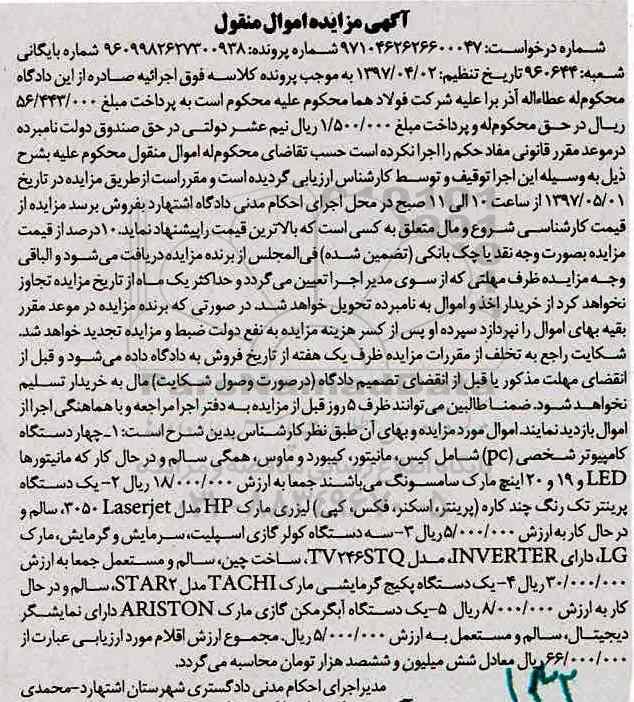 آگهی مزایده اموال منقول
شماره درخواست: ۹۷۱۰۴۶۲۶۲۶۶۰۰۰۴۷ شماره پرونده: ۹۶۰۹۹۸۲۶۲۷۳۰۰۹۳۸ شماره بایگانی
شعبه: ۹۶۰۶۴۴ تاریخ تنظیم: ۱۳۹۷/۰۴/۰۲ به موجب پرونده کلاسه فوق اجرائیه صادره از این دادگاه
محکوم‌له عطاءاله آذر برا علیه شرکت فولاد هما محکوم علیه محکوم است به پرداخت مبلغ ۵۶/۴۴۳/۰۰۰
ریال در حق محکوم‌له و پرداخت مبلغ ۱/۵۰۰/۰۰۰ ریال نیم عشر دولتی در حق صندوق دولت نامبرده
در موعد مقرر قانونی مفاد حکم را اجرا نکرده است حسب تقاضای محکوم‌له اموال منقول محکوم علیه بشرح
ذیل به وسیله این اجرا توقیف و توسط کارشناس ارزیابی گردیده است و مقرر است از طریق مزایده در تاریخ
۱۳۹۷/۰۵/۰۱ از ساعت ۱۰ الی ۱۱ صبح در محل اجرای احکام مدنی دادگاه اشتهارد بفروش برسد مزایده از
قیمت کارشناسی شروع و مال متعلق به کسی است که بالاترین قیمت را پیشنهاد نماید. ۱۰درصد از قیمت
مزایده بصورت وجه نقد یا چک بانکی (تضمین شده) فی‌المجلس از برنده مزایده دریافت می‌شود و الباقی
وجه مزایده ظرف مهلتی که از سوی مدیر اجرا تعیین می‌گردد و حداکثر یک ماه از تاریخ مزایده تجاوز
نخواهد کرد از خریدار اخذ و اموال به نامبرده تحویل خواهد شد. در صورتی که برنده مزایده در موعد مقرر
بقیه بهای اموال را نپردازد سپرده او پس از کسر هزینه مزایده به نفع دولت ضبط و مزایده تجدید خواهد شد.
شکایت راجع به تخلف از مقررات مزایده ظرف یک هفته از تاریخ فروش به دادگاه داده می‌شود و قبل از
انقضای مهلت مذکور یا قبل از انقضای تصمیم دادگاه (درصورت وصول شکایت) مال به خریدار تسلیم
نخواهد شود. ضمنا طالبین می‌توانند ظرف ۵ روز قبل از مزایده به دفتر اجرا مراجعه و با هماهنگی اجرا از
اموال بازدید نمایند. اموال مورد مزایده و بهای آن طبق نظر کارشناس بدین شرح است: ۱-چهار دستگاه
کامپیوتر شخصی (pc) شامل کیس، مانیتور، کیبورد و ماوس، همگی سالم و در حال کار که مانیتورها
LED و ۱۹ و ۲۰ اینچ مارک سامسونگ می‌باشند جمعا به ارزش ۱۸/۰۰۰/۰۰۰ ریال ۲- یک دستگاه
پرینتر تک رنگ چند کاره (پرینتر، اسکنر، فکس، کپی) لیزری مارک HP مدل Laserjet ۳۰۵۰، سالم و
در حال کار به ارزش ۵/۰۰۰/۰۰۰ ریال ۳- سه دستگاه کولر گازی اسپلیت، سرمایش و گرمایش، مارک
LG، دارای INVERTER، مدل TV۲۴۶STQ، ساخت چین، سالم و مستعمل جمعا به ارزش
۳۰/۰۰۰/۰۰۰ ریال ۴- یک دستگاه پکیج گرمایشی مارک TACHI مدل STAR۲، سالم و در حال
کار به ارزش ۸/۰۰۰/۰۰۰ ریال ۵- یک دستگاه آبگرمکن گازی مارک ARISTON دارای نمایشگر
دیجیتال، سالم و مستعمل به ارزش ۵/۰۰۰/۰۰۰ ریال. مجموع ارزش اقلام مورد ارزیابی عبارت از
۶۶/۰۰۰/۰۰۰ ریال معادل شش میلیون و ششصد هزار تومان محاسبه می‌گردد.
مدیر اجرای احکام مدنی دادگستری شهرستان اشتهارد-محمدی
۱۳۲